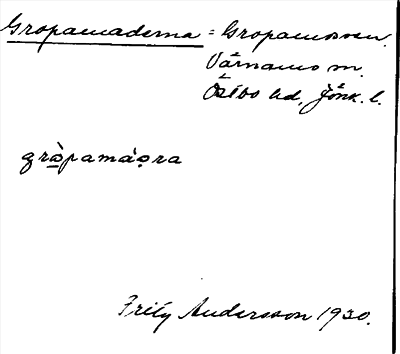 Gropamaderna = Gropamossen.
Värnamo sn.
Östbo hd, Jönk. l.
gròpamáǫra
Fritz Andersson 1930.